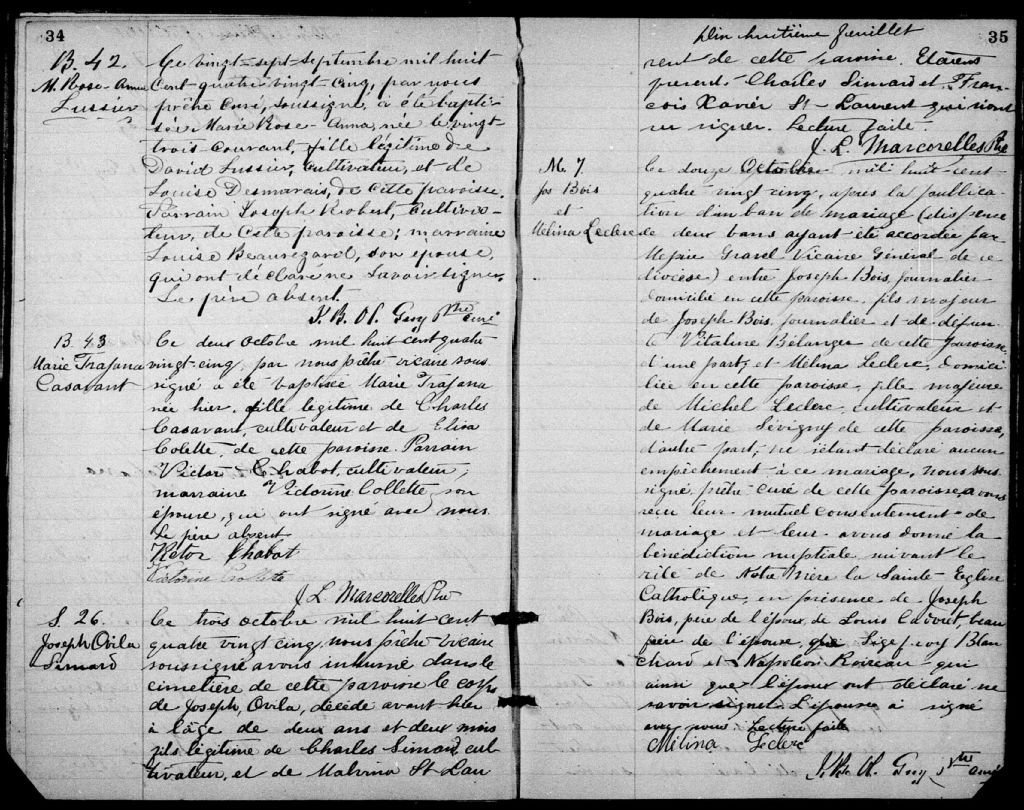 34
B. 42
M. Rose-Anna
Lussier
Ce vingt-sept Septembre mil huit
Cent-quatre vingt-cinq, par nous
prêtre Curé, soussigné, a été bapti-
sée Marie Rose-Anna, née le vingt-
trois Courant, fille légitime de
David Lussier, Cultivateur, et de
Louise Desmarais, de Cette paroisse.
Parrain Joseph Robert, Cultiva-
teur, de Cette paroisse; marraine
Louise Beauregard, son épouse,
qui ont déclaré ne savoir signer.
Le père absent.
Guy ptre curé
B. 43
Marie Trafana
Casavant
Ce deux Octobre mil huit cent quatre
vingt-cinq, par nous prêtre vicaire sous
signé a été baptisée Marie Trafana
née hier, fille legitime de Charles
Casavant, cultivateur et de Elisa
Colette, de cette paroisse. Parrain
Victor Chabot, cultivateur,
marraine Victorine Collette, son
épouse, qui ont signé avec nous.
Le père absent
Victor Chabot
Victorine Collette
J. L. Marcorelles Ptre
S. 26.
Joseph Ovila
Simard
Ce trois octobre mil huit cent
quatre vingt cinq, nous prêtre vicaire
soussigné avons inhumé dans le
cimetière de cette paroisse le corps
de Joseph, Ovila, décédé avant hier
à l'âge de deux ans et deux mois
fils légitime de Charles Simard, cul
tivateur, et de Malvina St Lau
35
Dix huitième feuillet
rent de cette paroisse. Etaient
present Charles Simard et Fran-
cois Xavier St-Laurent qui n'ont
su signer. Lecture faite.
J. L. Marcorelles Ptre
M. 7
Jos Bois
et
Mélina Leclerc
Ce douze Octobre mil huit-cent-
quatre vingt cinq, après la publica-
tion d'un ban de mariage (dispense
de deux bans ayant-été accordée par
Messire Gravel Vicaire Général de ce
diocèse) entre Joseph Bois, journalier
domicilié en cette paroisse, fils majeur
de Joseph Bois, journalier et de défun-
te Vitaline Bélanger de cette paroisse,
d'une part; et Mélina Leclerc, domici
liée en cette paroisse, fille majeure
de Michel Leclerc, cultivateur et
de Marie Sévigny de cette paroisse,
d'autre part; ne s'étant déclaré aucun
empêchement à ce mariage, nous sous
signé prêtre curé de cette paroisse, avons
reçu leur mutuel consentement de
mariage et leur avons donné la
bénédiction nuptiale suivant le
rite de Notre Mère la Sainte Eglise
Catholique, en présence de Joseph
Bois, père de l'époux, de Louis beau
père de l'épouse, Blan
chard et Napoléon qui
ainsi que l'époux ont déclaré ne
savoir signer. L'épouse a signé
avec nous Lecture faite
Mélina Leclerc
Guy ptre curé